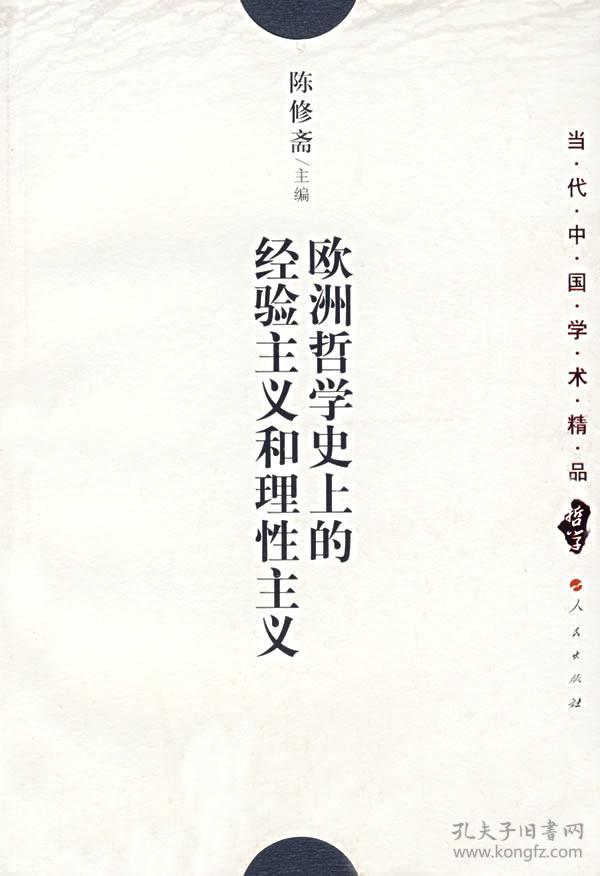 陈修斋/主编
欧洲哲学史上的
经验主义和理性主义
当·代·中·国·学·术·精·品
哲学
人民出版社
孔夫子旧书网
www.kongfz.com